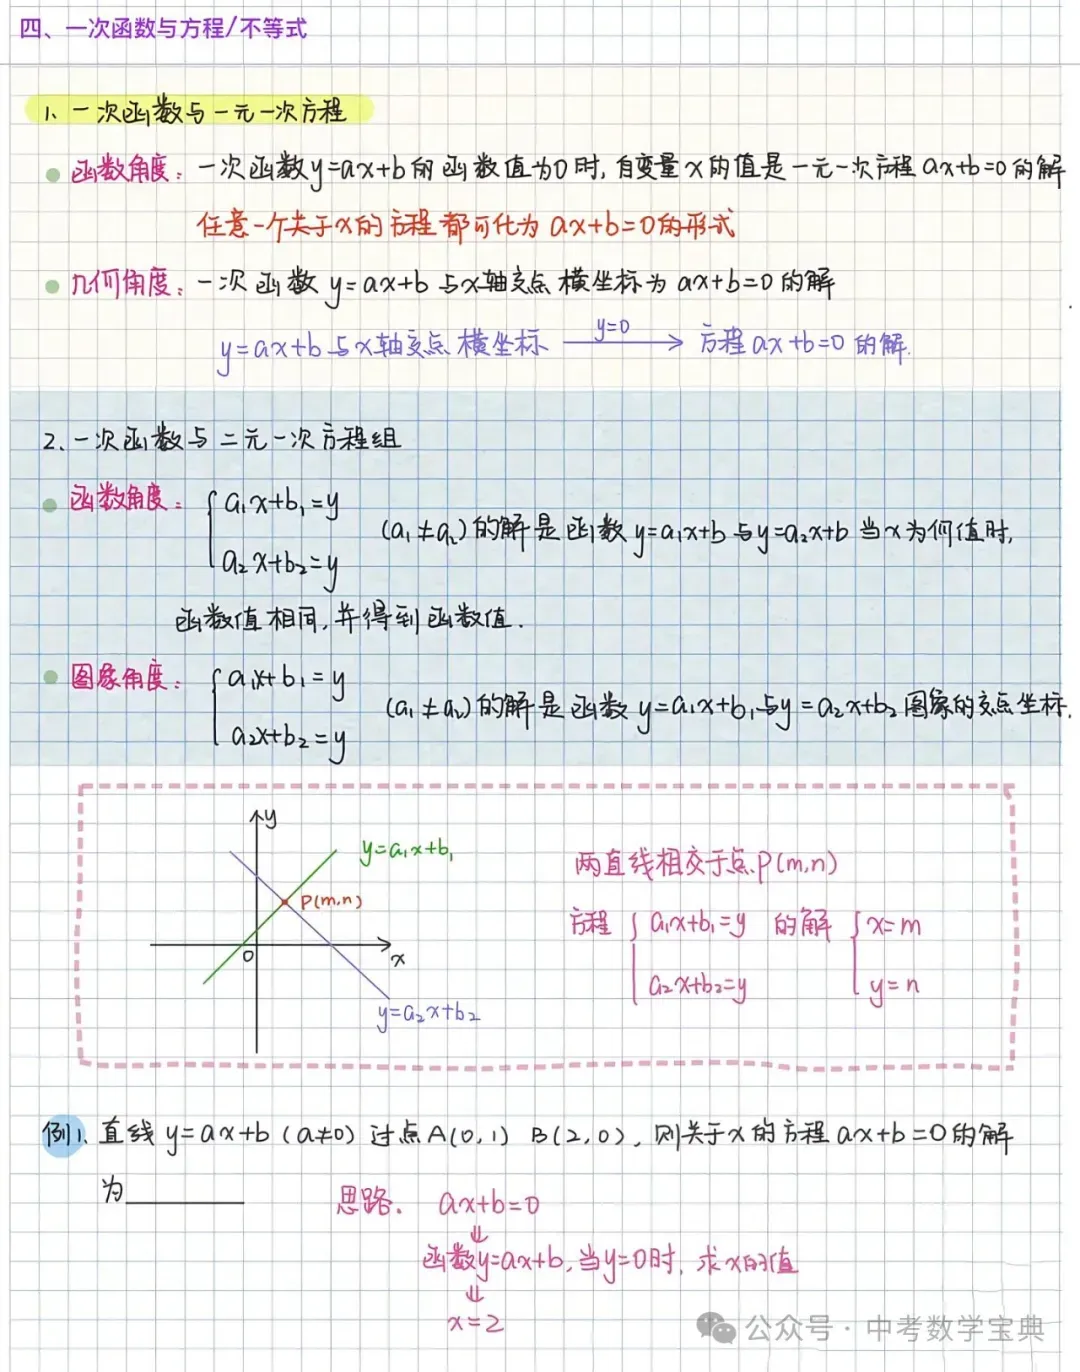 四、一次函数与方程/不等式
1、一次函数与一元一次方程
函数角度：一次函数y=ax+b的函数值为0时,自变量x的值是一元一次方程ax+b=0的解
任意一个关于x的方程都可化为ax+b=0的形式
几何角度：一次函数y=ax+b与x轴交点横坐标为ax+b=0的解
y=ax+b与x轴交点横坐标 y=0→ 方程ax+b=0的解.
2、一次函数与二元一次方程组
函数角度：{a₁x+b₁=y
a₂x+b₂=y
(a₁≠a₂)的解是函数y=a₁x+b与y=a₂x+b当x为何值时,
函数值相同,并得到函数值.
图象角度：{a₁x+b₁=y
a₂x+b₂=y
(a₁≠a₂)的解是函数y=a₁x+b₁与y=a₂x+b₂图象的交点坐标.
y
y=a₁x+b₁
P(m,n)
O
x
y=a₂x+b₂
两直线相交于点P(m,n)
方程{a₁x+b₁=y 的解{x=m
a₂x+b₂=y y=n
例1、直线y=ax+b(a≠0)过点A(0,1) B(2,0),则关于x的方程ax+b=0的解
为________
思路. ax+b=0
⇓
函数y=ax+b,当y=0时,求x的值
⇓
x=2
公众号·中考数学宝典